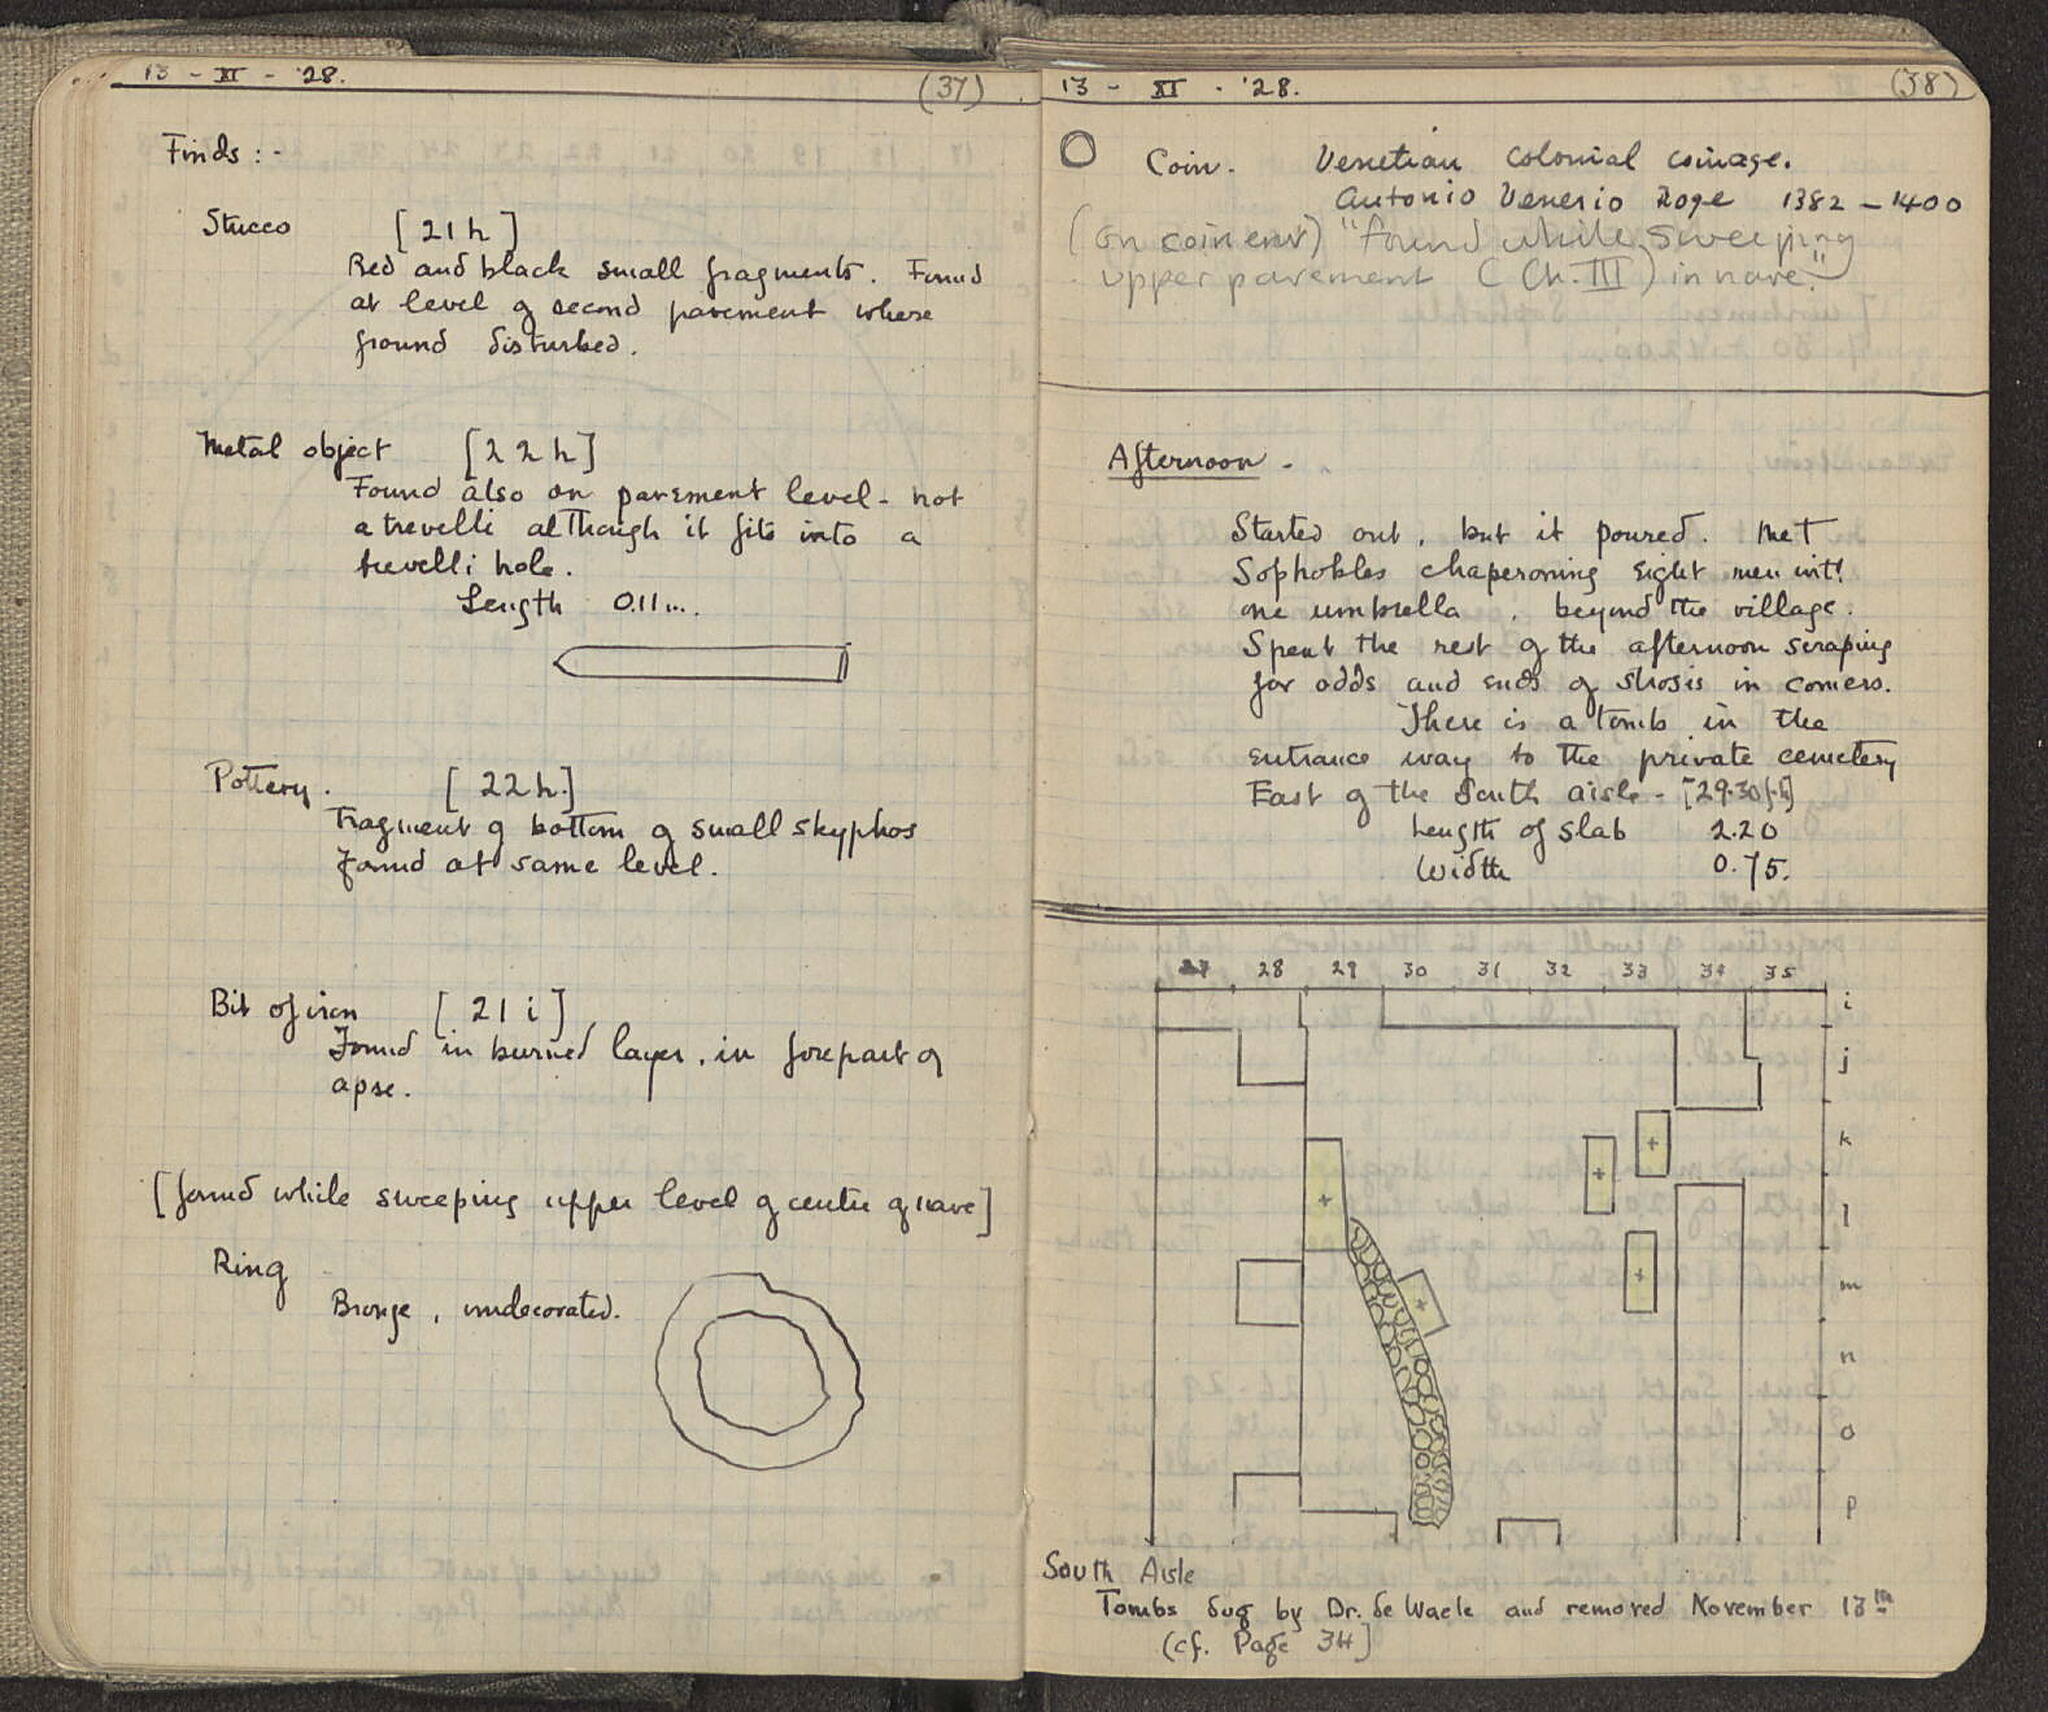 13 - XI - '28.
(37)
Finds : -
Stucco [21 h]
Red and black small fragments. Found
at level of second pavement where
ground disturbed.
Metal object [22 h]
Found also on pavement level - not
a trevelli although it fits into a
trevelli hole.
Length 0.11 m.
Pottery. [22 h.]
Fragment of bottom of small skyphos
found at same level.
Bit of iron [21 i]
Found in burned layer, in forepart of
apse.
[found while sweeping upper level of centre of nave]
Ring
Bronze, undecorated.
13 - XI - '28.
(38)
Coin. Venetian colonial coinage.
Antonio Venerio Doge 1382 - 1400
(on coin env) "found while sweeping
upper pavement (Ch. III) in nave."
Afternoon -
Started out, but it poured. Met
Sophokles chaperoning eight men with
one umbrella, beyond the village.
Spent the rest of the afternoon scraping
for odds and ends of strosis in corners.
There is a tomb in the
entrance way to the private cemetery
East of the South aisle - [29-30
Length of slab 2.20
Width 0.75.
27 28 29 30 31 32 33 34 35
i
j
k
l
m
n
o
p
South Aisle
Tombs dug by Dr. de Waele and removed November 13th
(cf. Page 34]